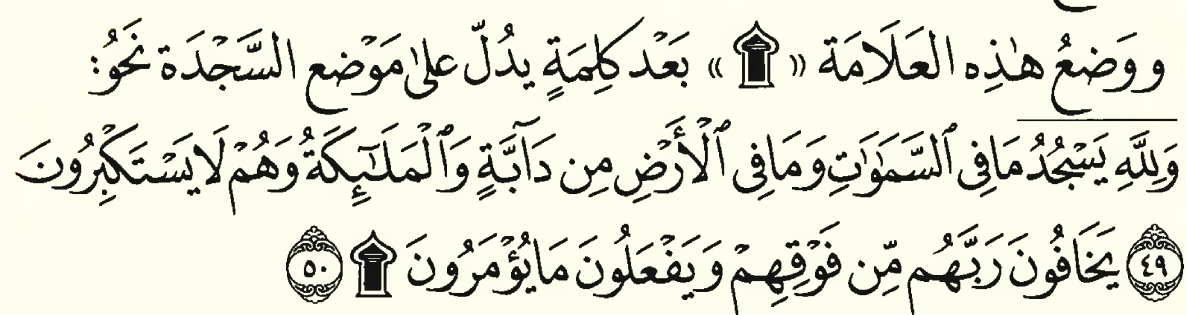 ووَضعُ هٰذِه العَلَامَة « ۩ » بَعْد كلِمَةٍ يدُلّ علىٰ مَوْضع السَّجْدَة نَحْوُ:
وَلِلَّهِ يَسْجُدُ مَا فِي ٱلسَّمَٰوَٰتِ وَمَا فِي ٱلْأَرْضِ مِن دَآبَّةٍ وَٱلْمَلَٰٓئِكَةُ وَهُمْ لَا يَسْتَكْبِرُونَ
۝٤٩ يَخَافُونَ رَبَّهُم مِّن فَوْقِهِمْ وَيَفْعَلُونَ مَا يُؤْمَرُونَ ۩ ۝٥٠